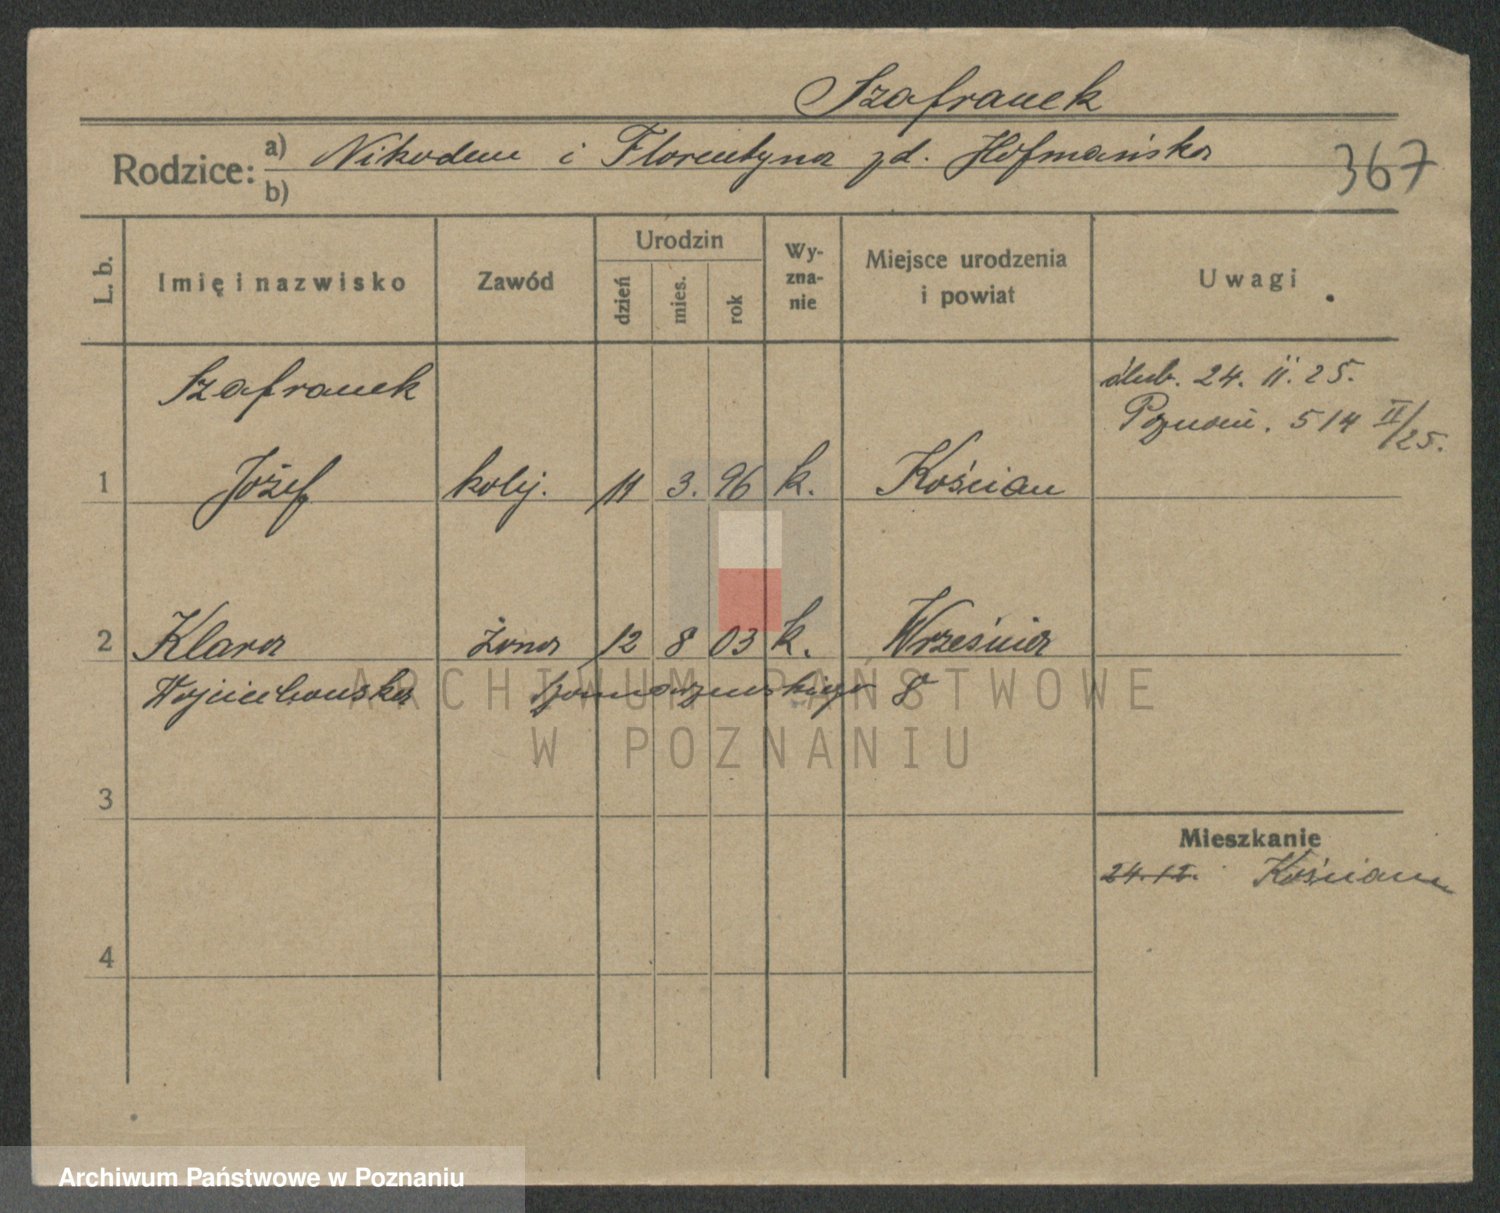 Szafranek
Rodzice: a) Nikodem i Florentyna zd. Hofmańska
b)
367
L. b.
Imię i nazwisko
Zawód
Urodzin
dzień
mies.
rok
Wy-
zna-
nie
Miejsce urodzenia
i powiat
Uwagi
Szafranek
ślub. 24. II. 25.
Poznań. 514 II/25.
1 Józef kolej. 11 3. 96 k. Kościan
2 Klara żona 12 8 03 k. Września
Wojciechowska 8
ARCHIWUM PAŃSTWOWE
W POZNANIU
3
Mieszkanie
24.12. Kościan
4
Archiwum Państwowe w Poznaniu